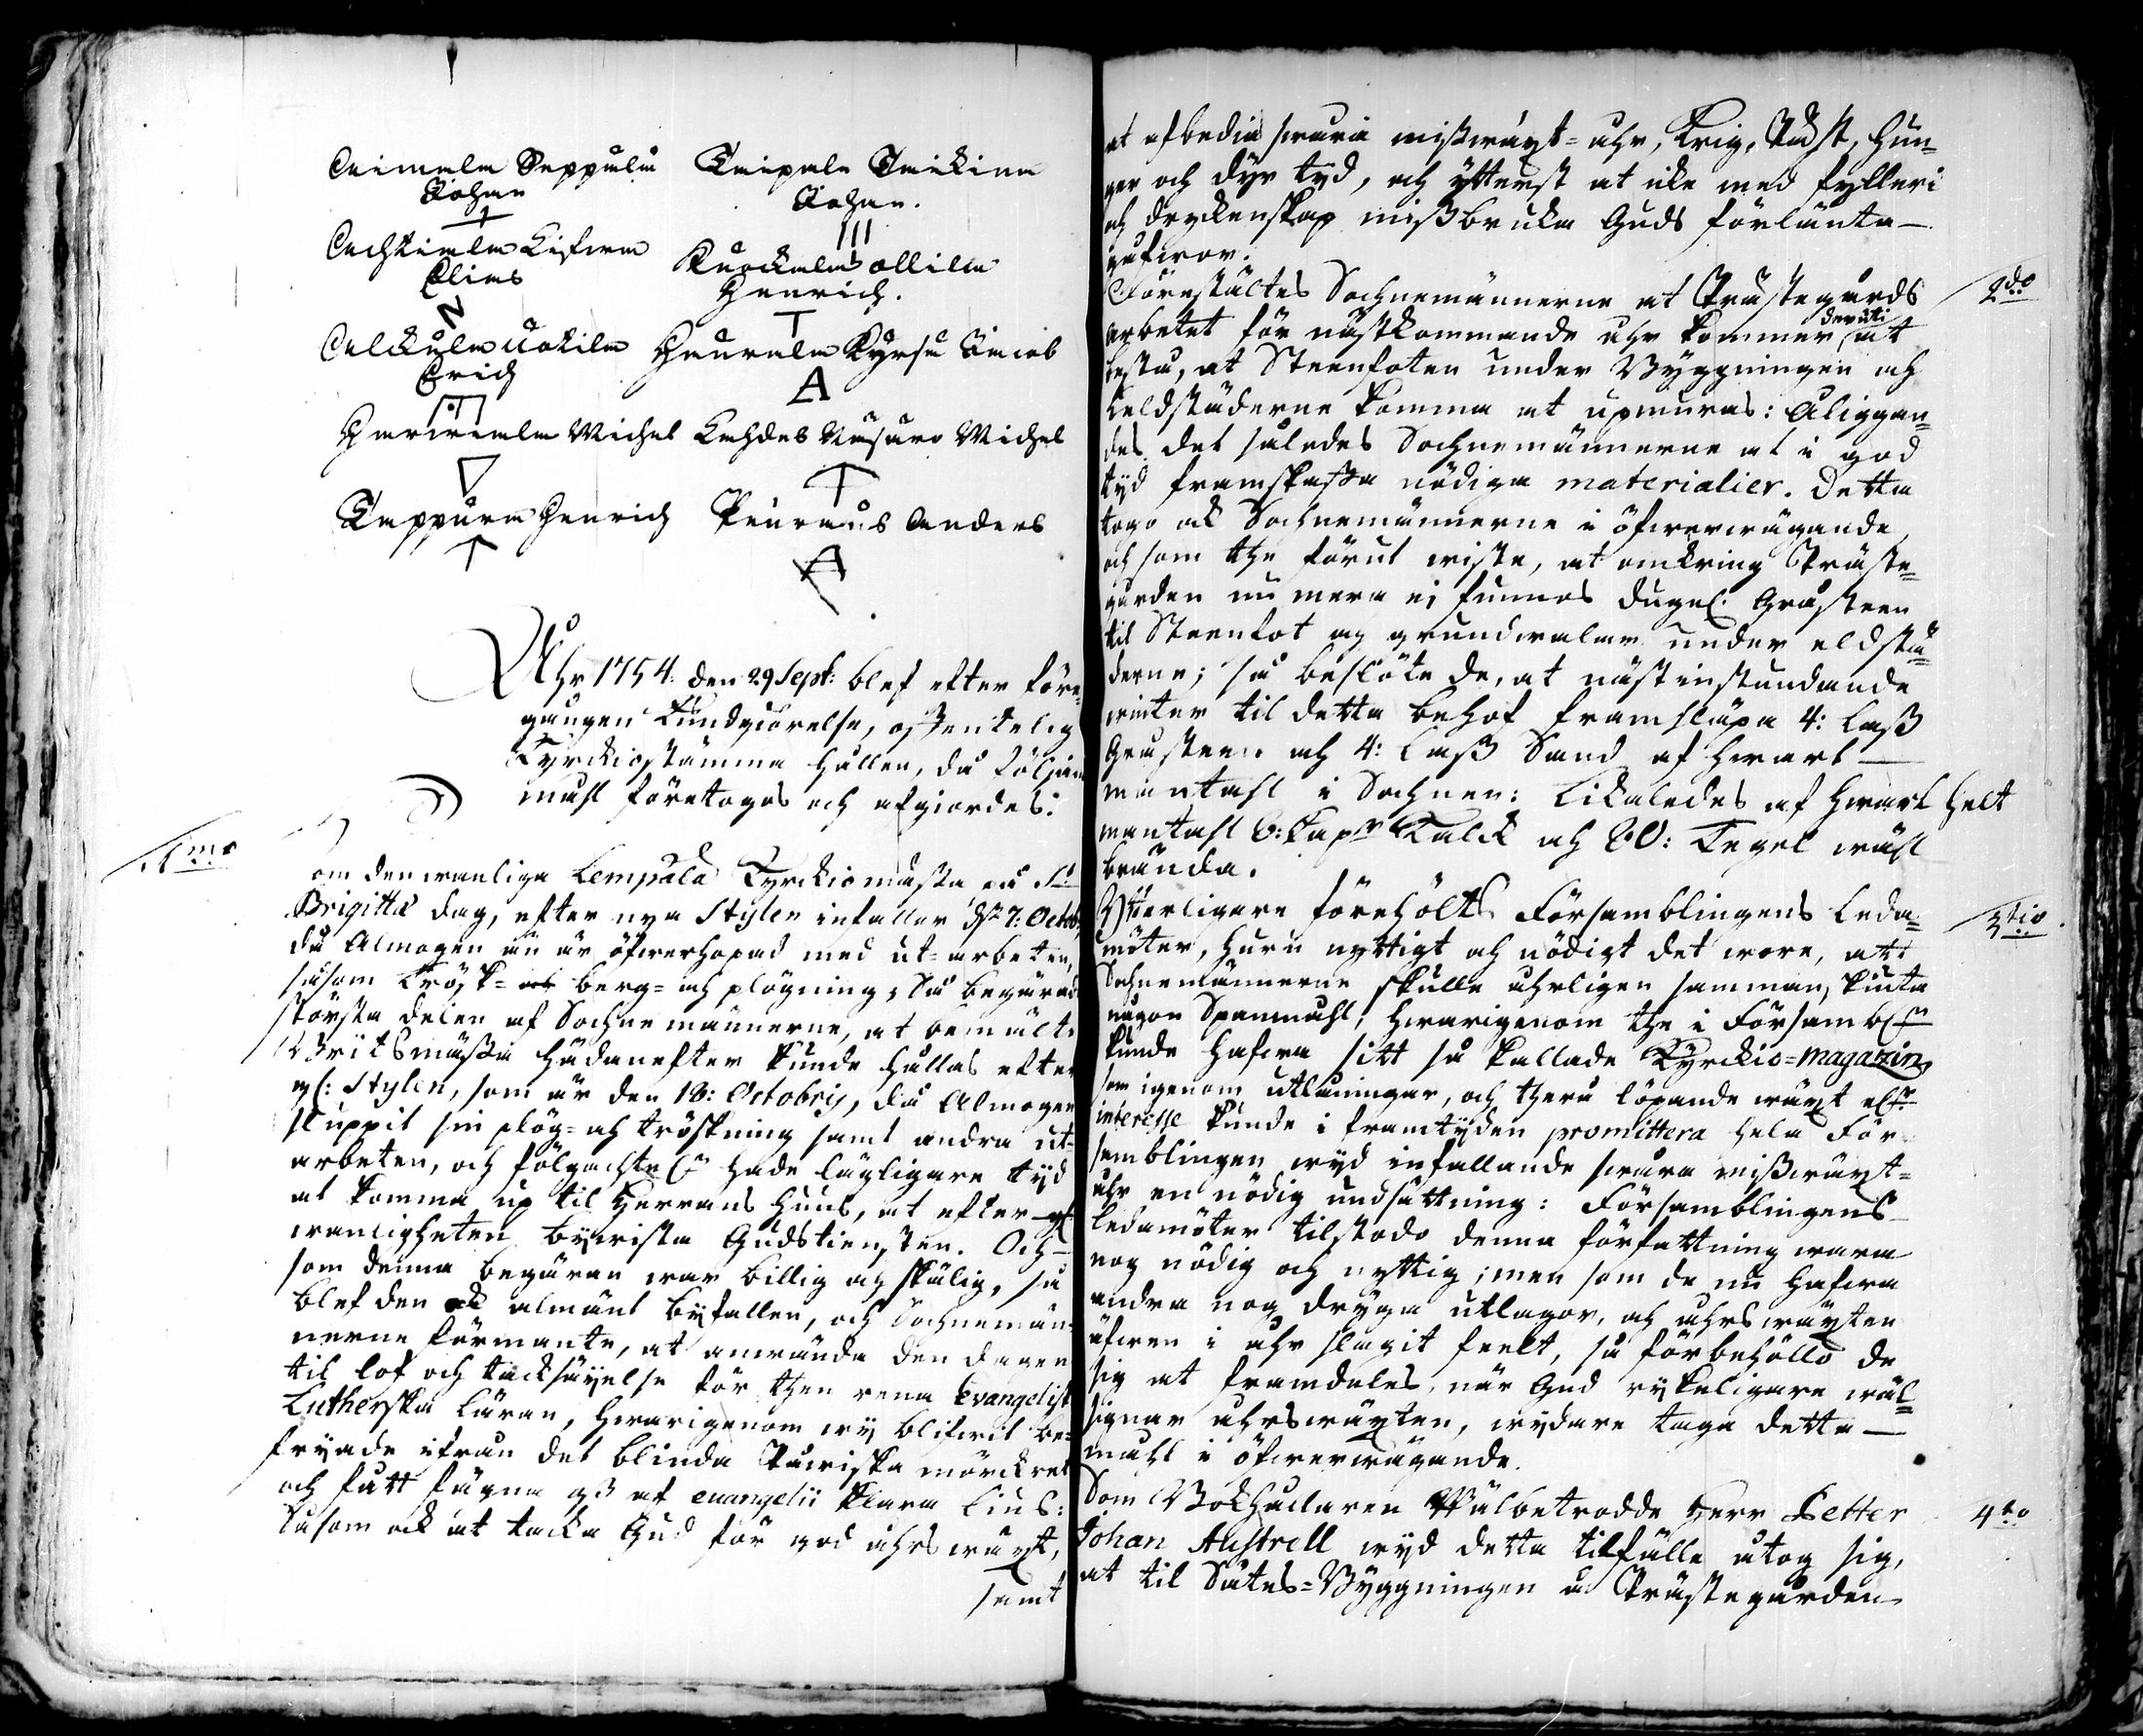 Aimala Seppälä
Johan
Kaipala Taikina
Johan.
Ahtiala Lisma
Elias
Kuockala Ollila
Henrich.
Alkula Uotila
Erich
Heurala Kyrsä Jacob
Herrala Michel
Lahdes Näsäro Michel
Tappura Henrich
Peuraus Anders
Åhr 1754: den 29 Sept: blef efter före-
gången kundgiörelse, offentelig
Kyrckiostämma hållen, då följan
måhl företogos och afgiordes:
1mo
om den wanliga Lempälä Kyrckiomässa, på St
Brigittæ dag, efter nya Stylen infaller dn 7: Octob:
då Almogen än är öfwerhopad med ut-arbeten,
såsom Trösk- berg- och plögning; Så begärade
största delen af Sochnemännerne, at bemälte
Britsmässa hädanefter kunde hållas efter
gl: Stylen, som är den 18: Octobris, då Almogen
sluppit sin plög- och tröskning samt andra ut-
arbeten, och fölgachtel:n hade lägligare tyd
at komma up til Herrans Huus, at efter
wanligheten bywista Gudstiensten. Och
som denna begäran war billig och skälig, så
blef den ock almänt byfallen, och Sochnemän-
nerne förmante, at anwända den dagen
til lof och tacksäyelse för then rena Evangelisk
Lutherska Läran, hwarigenom wy blifwit be-
fryade ifrån det blinda Påwiska mörckret
och fått fägna oss af evangelii klara lius:
Såsom ock at tacka Gud för god åhrswäxt,
samt
at afbedia swåra misswäxt-åhr, Krig, Pest, Hun-
ger och dyr tyd, och ytterst at icke med fylleri
och dryckenskap missbruka Guds förlänta
gåfwor.
2do
Föreställtes Sochnemännerne at Prästegårds
arbetet för nästkommande åhr kommer deruti at
bestå, at Steenfoten under Byggningen och
Eeldstäderne komma at upmuras: Åliggan-
des det således Sochnemännerne at i god
tyd framskaffa nödiga materialier. Detta
togo ock Sochnemännerne i öfwerwägande,
och som the förut wiste, at omkring Präste-
gården nu mera ej funnos dugel: Gråsteen
til Steenfot og grundwalar under eldstä-
derne; så beslöto de, at näst instundande
winter til detta behof framsläpa 4: lass
Gråsteen och 4: lass Sand af hwart
mantahl i Sochnen: Likaledes af hwart helt
mantahl 6: Kapr Kalck och 20: Tegel wähl
brända.
3tio.
Ytterligare förehölts Församblingens Leda-
möter, huru nyttigt och nödigt det wore, att
Sochnemännerne skulle åhrligen samman skiuta
någon Spannmåhl, hwarigenom the i Försambl:n
kunde hafwa sitt så kallade Kyrckio-magazin,
som igenom utlåningar, och thera löpande wäxt el:r
interesse kunde i framtyden promittera hela För-
samblingen wyd infallande swåra misswäxt-
åhr en nödig undsättning: Församblingens
Ledamöter tilstodo denna författning wara
nog nödig och nyttig; men som de nu hafwa
andra nog dryga utlagor, och åhrswäxten
äfwen i åhr slagit feelt, så förbehöllo de
sig at framdeles, när Gud rykeligare wäl-
signar åhrswäxten, wydare taga detta
måhl i öfwerwägande.
4to
Som Bokhållaren Wälbetrodde Herr Petter
Johan Austrell wyd detta tilfälle åtog sig,
at til Sätes-Byggningen å Prästegården